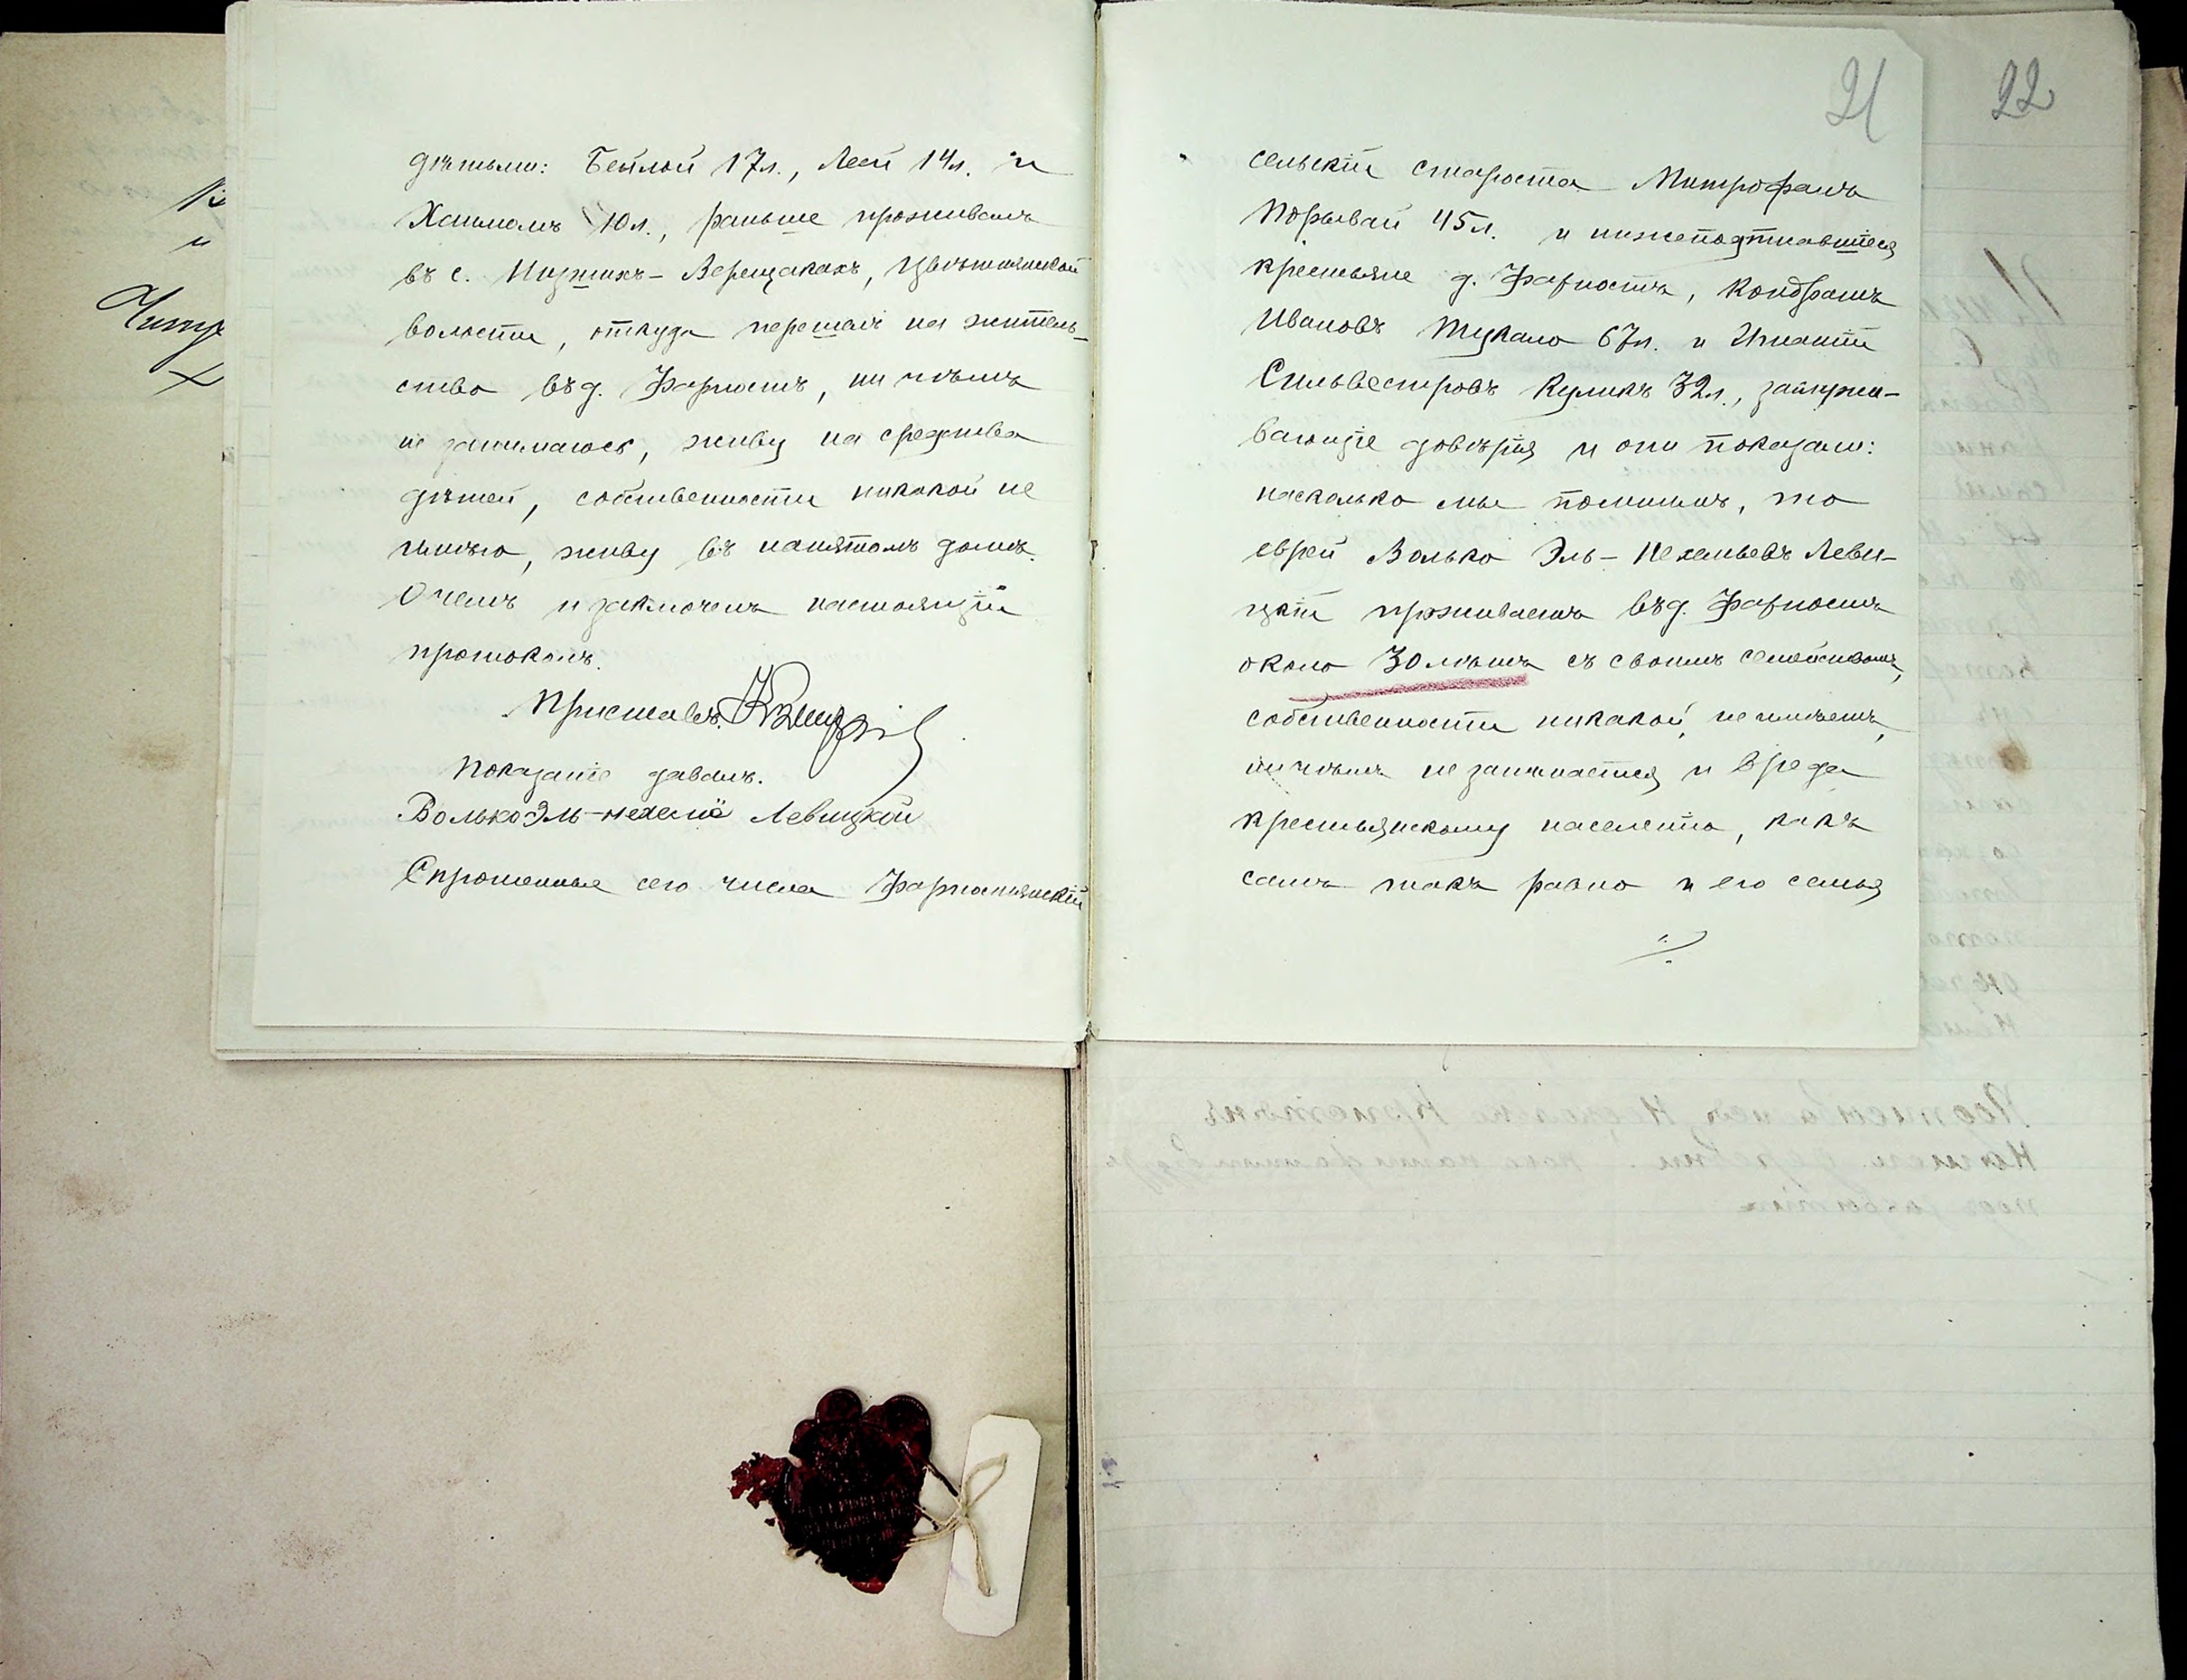 дѣтьми: Бейлой 17 л., Леей 14 л. и
Хаимомъ 10 л., раньше проживалъ
въ с. Нижнихъ-Верещакахъ,
волости, откуда перешелъ на житель-
ство въ д. Фарность, ни чѣмъ
не занимаюсь, живу на средства
дѣтей, собственности никакой не
имѣю, живу въ нанятомъ домѣ.
О чемъ и заключенъ настоящій
протоколъ.
Приставъ
Показаніе давалъ.
Волько Эль- Левицкой
Спрошенные сего числа Фарностянскій
21
сельскій староста Митрофанъ
Порывай 45 л. и нижеподписавшіеся
крестьяне д. Фарность, Кондратъ
Ивановъ Тукало 67 л. и Игнатій
Сильвестровъ Куликъ 32 л., заслужи-
вающіе довѣрія и они показали:
насколько мы помнимъ, то
еврей Волько Эль-Неханьевъ Леви-
цкій проживаетъ въ д. Фарность
около 30 лѣтъ съ своимъ семействомъ,
собственности никакой, не имѣетъ,
ни чѣмъ не занимается и вреда
крестьянскому населенію, какъ
самъ такъ равно и его семья
22